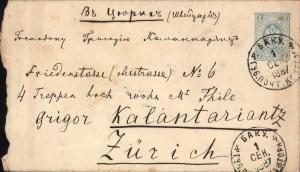 Въ Цюрихъ (Швейцарія)
Григорію Калантарянцъ
Friedensstasse № 6
4 Treppen hoch wohn Mr Thile
Grigor Kalantariantz
Zürich
БАКУ
1
СЕН.
1887
БАКУ
1
СЕН.
1887